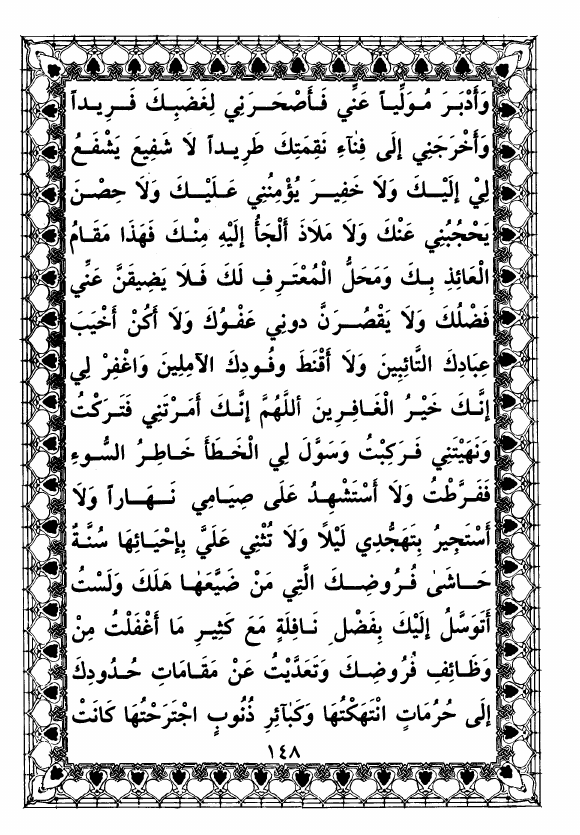 وَأَدْبَرَ مُوَلِّياً عَنِّي فَأَصْحَرَنِي لِغَضَبِكَ فَرِيداً
وَأَخْرَجَنِي إلَى فِنَآءِ نَقِمَتِكَ طَرِيداً لَا شَفِيعَ يَشْفَعُ
لِيْ إلَيْكَ وَلَا خَفِيرَ يُؤْمِنُنِي عَلَيْكَ وَلَا حِصْنَ
يَحْجُبُنِي عَنْكَ وَلَا مَلَاذَ أَلْجَأُ إلَيْهِ مِنْكَ فَهَذَا مَقَامُ
الْعَائِذِ بِكَ وَمَحَلُّ الْمُعْتَرِفِ لَكَ فَلَا يَضِيقَنَّ عَنِّي
فَضْلُكَ وَلَا يَقْصُرَنَّ دونِي عَفْوُكَ وَلَا أَكُنْ أَخْيَبَ
عِبَادِكَ التَّائِبِينَ وَلَا أَقْنَطَ وفُودِكَ الآمِلِينَ وَاغْفِرْ لِي
إنَّكَ خَيْرُ الْغَافِرِينَ أللَّهُمَّ إنَّكَ أَمَرْتَنِي فَتَرَكْتُ
وَنَهَيْتَنِي فَرَكِبْتُ وَسَوَّلَ لِي الْخَطَأَ خَاطِرُ السُّوءِ
فَفَرَّطْتُ وَلَا أَسْتَشْهِدُ عَلَى صِيَامِي نَهَاراً وَلَا
أَسْتَجِيرُ بِتَهَجُّدِي لَيْلًا وَلَا تُثْنِي عَلَيَّ بِإحْيَائِهَا سُنَّةٌ
حَاشَىٰ فُرُوضِكَ الَّتِي مَنْ ضَيَّعَهَا هَلَكَ وَلَسْتُ
أَتَوَسَّلُ إلَيْكَ بِفَضْلِ نَافِلَةٍ مَعَ كَثِيرِ مَا أَغْفَلْتُ مِنْ
وَظَائِفِ فُرُوضِكَ وَتَعَدَّيْتُ عَنْ مَقَامَاتِ حُدُودِكَ
إلَى حُرُمَاتٍ انْتَهَكْتُهَا وَكَبَآئِرِ ذُنُوبٍ اجْتَرَحْتُهَا كَانَتْ
١٤٨